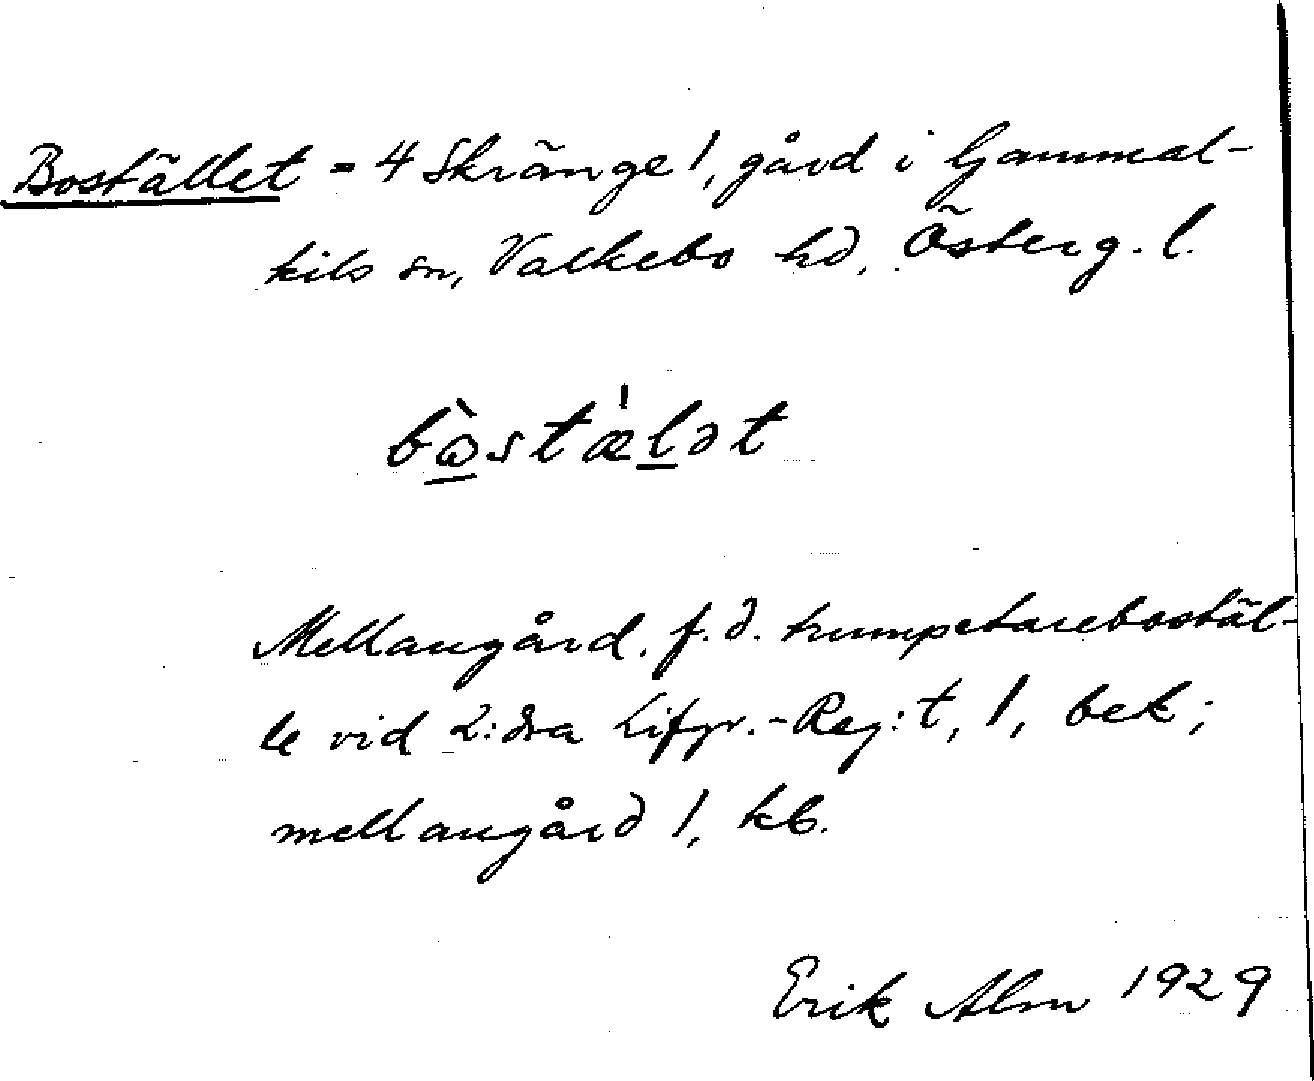 Boställlet = 4 Skränge 1, gård i Gammal-
kils sn, Valkebo hd, Österg. l.
bὼstæ̍lət
Mellangård, f.d. trumpetarebostäl-
le vid 2:dra Lifgr.-Reg:t, 1, bek;
mellangård 1, kb.
Erik Alm 1929